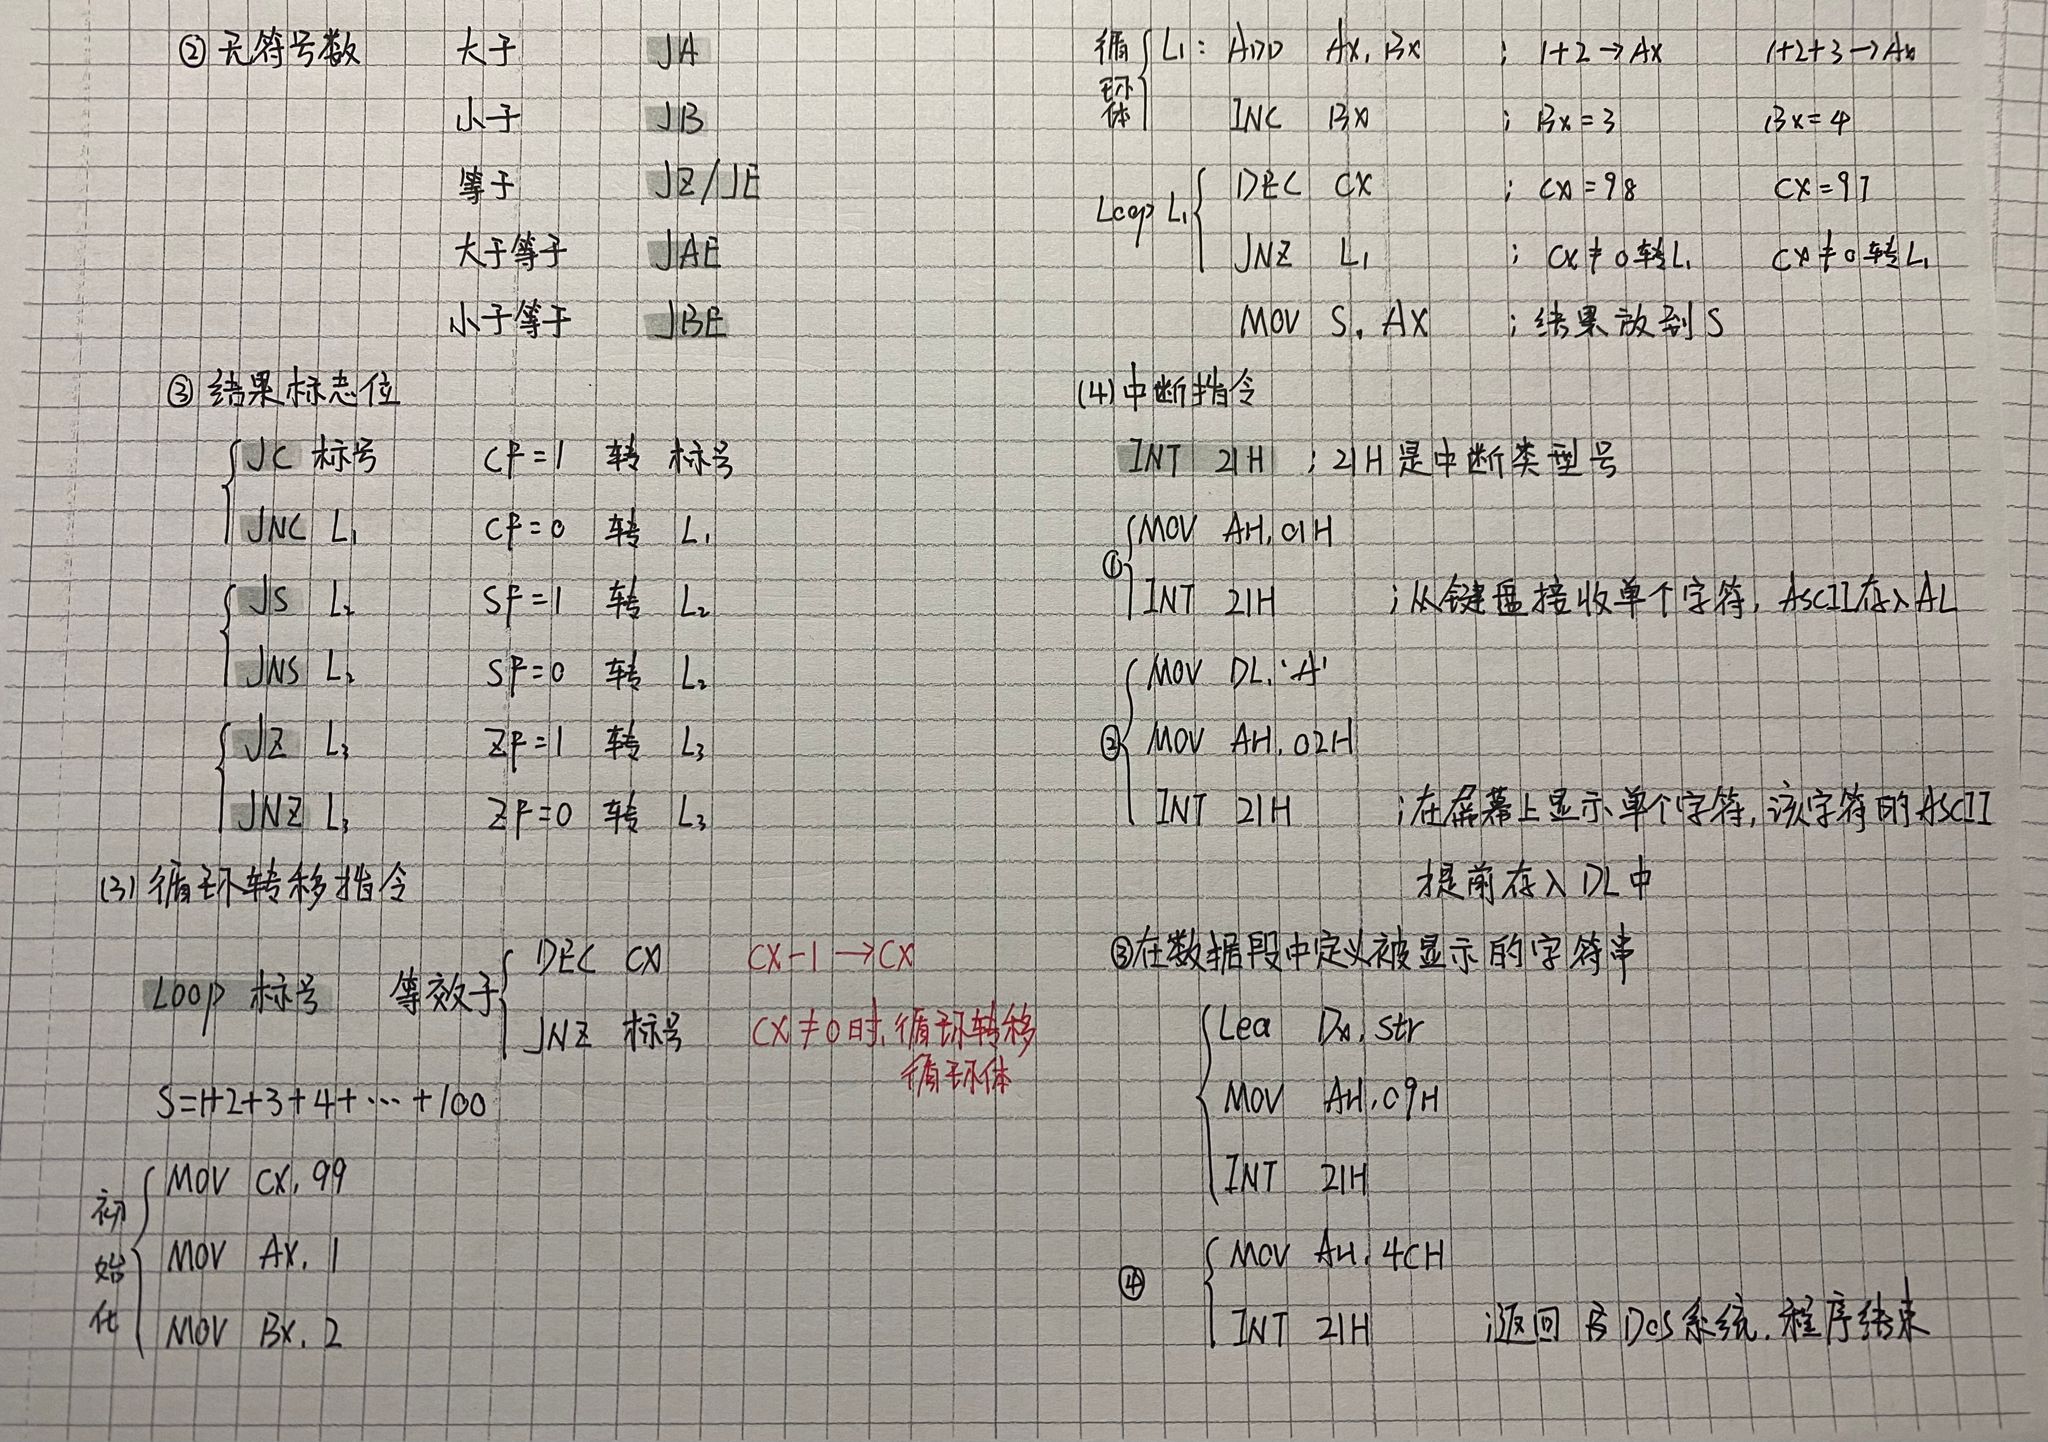 ② 无符号数 大于 JA
小于 JB
等于 JZ/JE
大于等于 JAE
小于等于 JBE
③ 结果标志位
JC 标号 CF=1 转 标号
JNC L₁ CF=0 转 L₁
JS L₂ SF=1 转 L₂
JNS L₂ SF=0 转 L₂
JZ L₃ ZF=1 转 L₃
JNZ L₃ ZF=0 转 L₃
(3) 循环转移指令
Loop 标号 等效于 DEC CX CX-1→CX
JNZ 标号 CX≠0时,循环转移
循环体
S=1+2+3+4+…+100
初始化 MOV CX, 99
MOV AX, 1
MOV BX, 2
循环体 L₁: ADD AX, BX ; 1+2→AX 1+2+3→AX
INC BX ; BX=3 BX=4
Loop L₁ DEC CX ; CX=98 CX=97
JNZ L₁ ; CX≠0转L₁ CX≠0转L₁
MOV S, AX ; 结果放到S
(4) 中断指令
INT 21H ; 21H是中断类型号
① MOV AH, 01H
INT 21H ; 从键盘接收单个字符, ASCII存入AL
② MOV DL, 'A'
MOV AH, 02H
INT 21H ; 在屏幕上显示单个字符, 该字符的ASCII
提前存入DL中
③ 在数据段中定义被显示的字符串
Lea DX, str
MOV AH, 09H
INT 21H
④ MOV AH, 4CH
INT 21H ; 返回 DOS系统, 程序结束